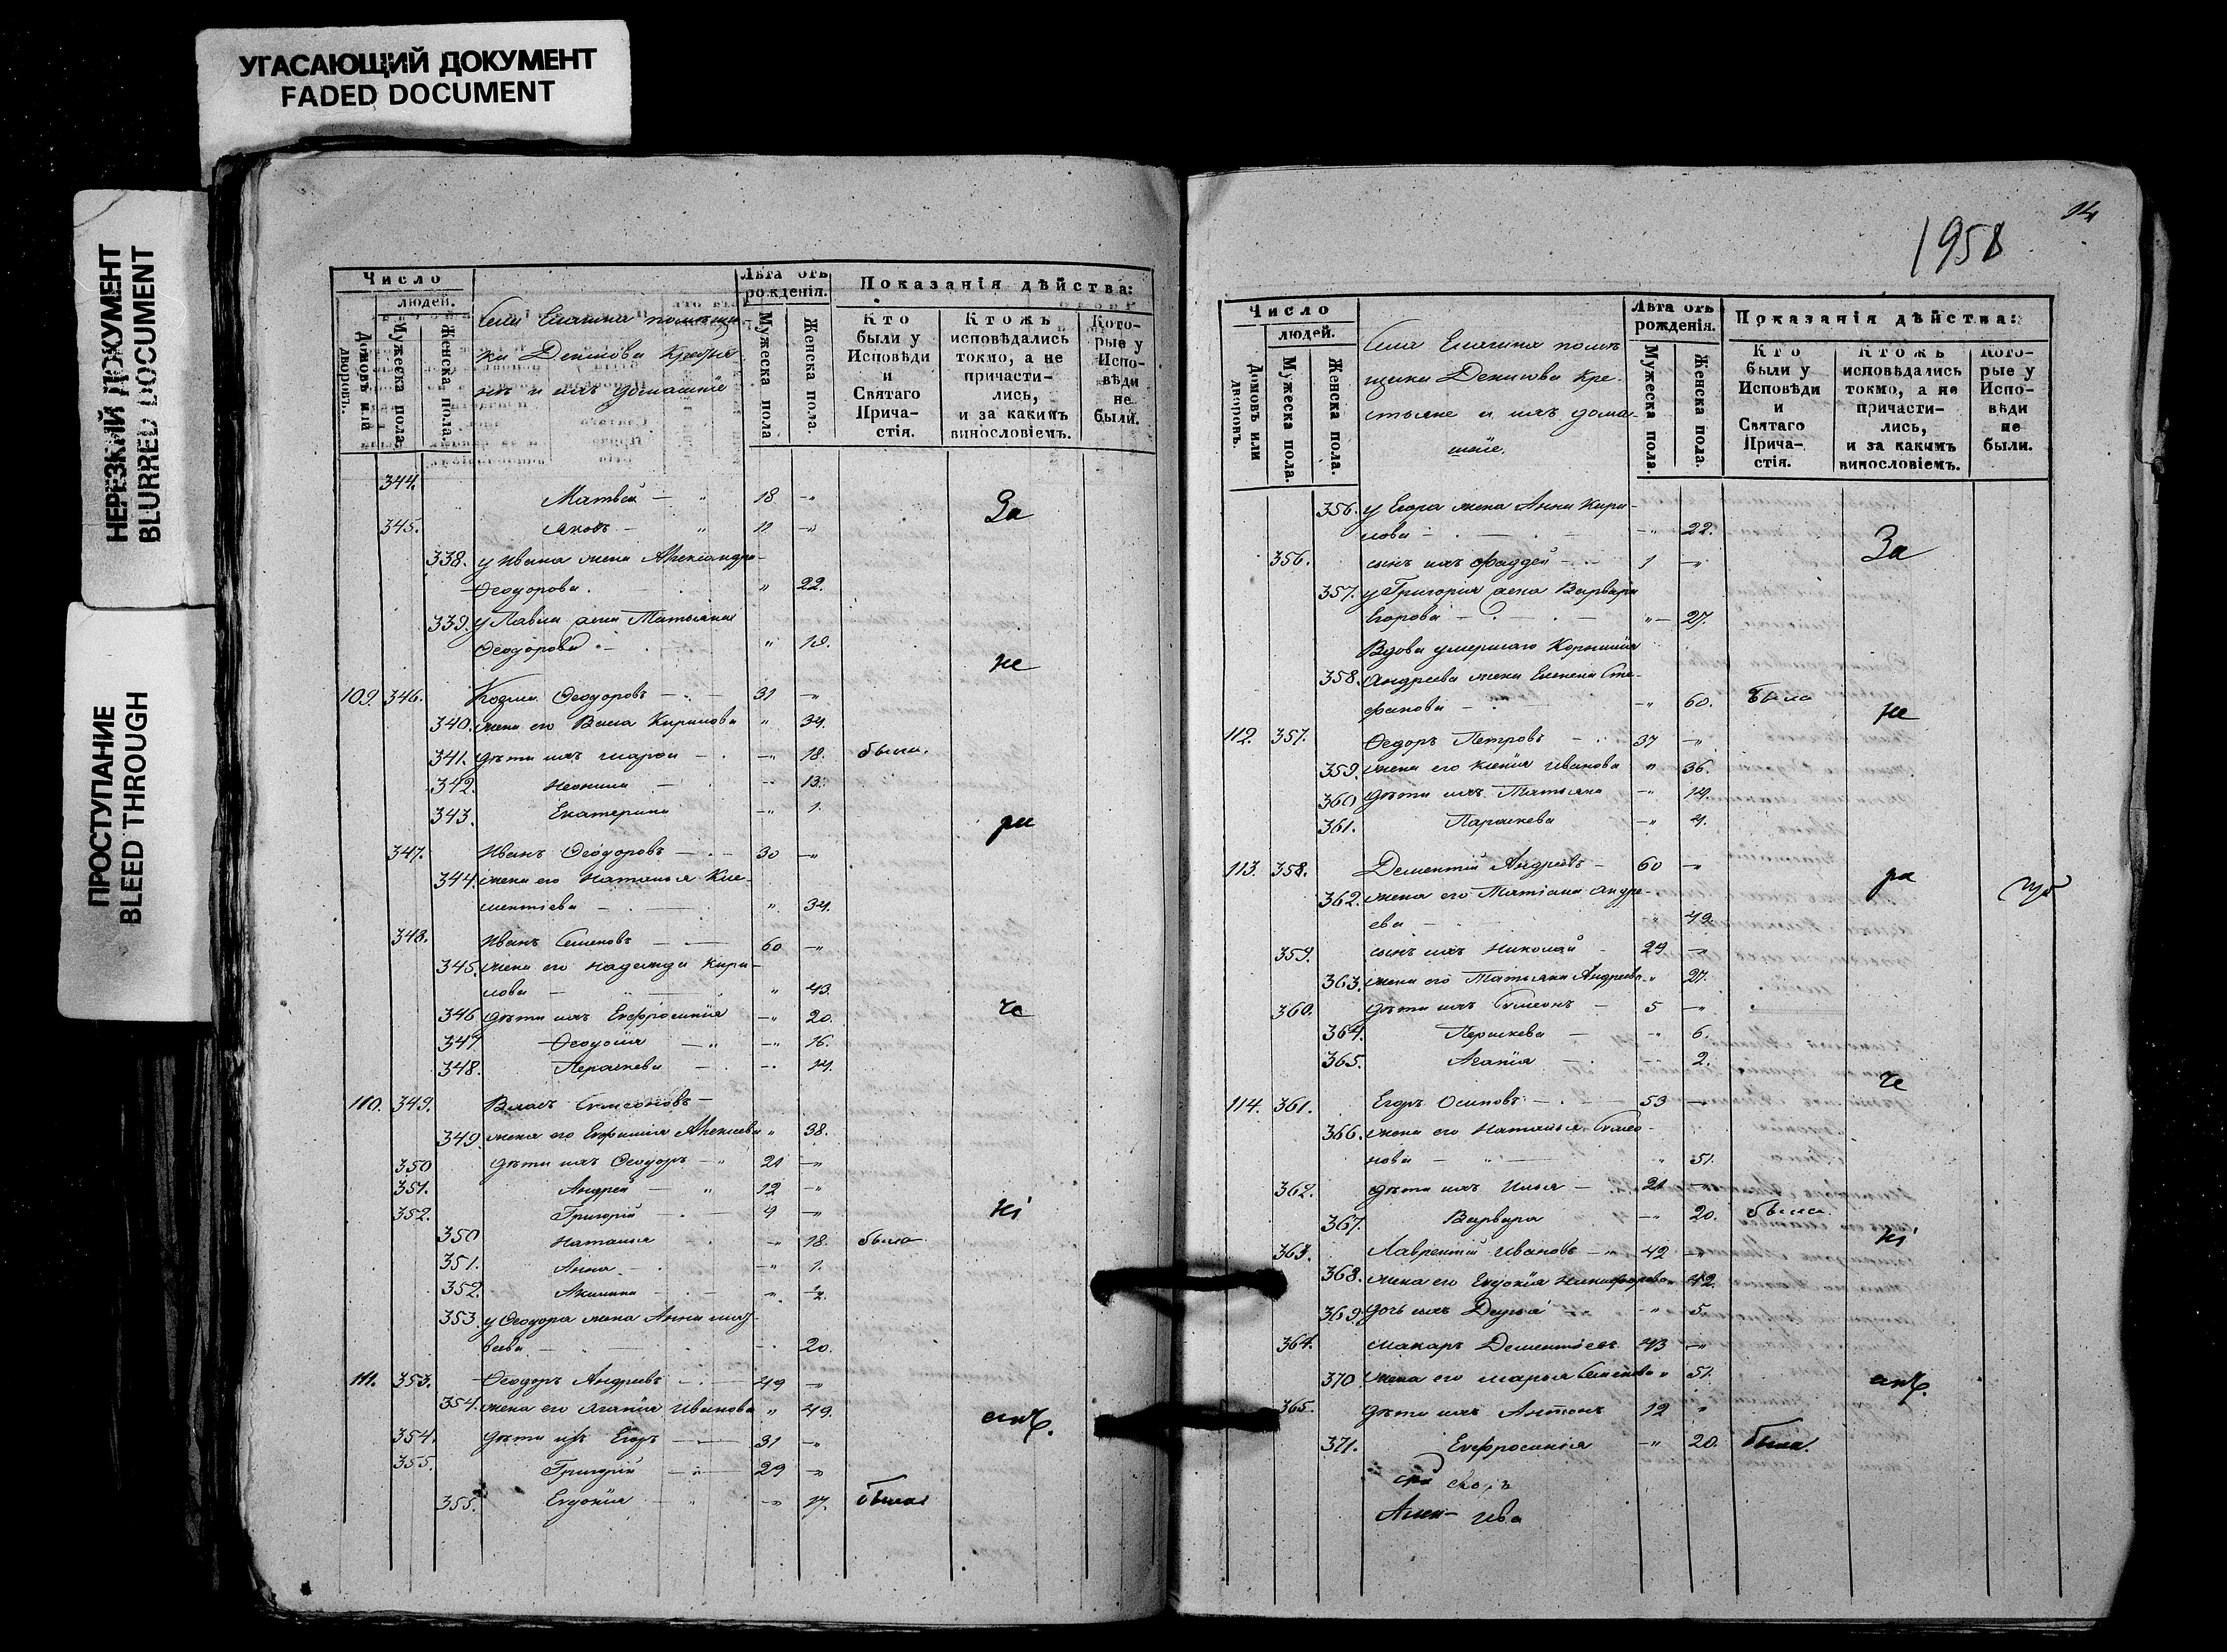 УГАСАЮЩИЙ ДОКУМЕНТ
FADED DOCUMENT
НЕРЕЗКИЙ ДОКУМЕНТ
BLURRED DOCUMENT
ПРОСТУПАНИЕ
BLEED THROUGH
Число
людей.
Домовъ или дворовъ.
Мужеска пола.
Женска пола.
Села Елагина помѣщи-
ка Денисова Крестья-
нѣ и ихъ домашніе
Лѣта отъ рожденія.
Мужеска пола
Женска пола.
Показанія дѣйства:
Кто были у Исповѣди и Святаго Прича-стія.
Ктожъ исповѣдались токмо, а не причасти-лись, и за какимъ винословіемъ.
Кото-рые у Испо-вѣди не были.
344. Матвей — " 18 —"
За
345. Яковъ — " 11 —"
338. у Ивана жена Александра
Ѳеодорова. " 22.
339. у Павла жена Татьяна
Ѳеодорова " 19.
не
109. 346. Козма Ѳеодоровъ — 31 —"
340. жена его Васса Кирилова " 34.
341. дѣти ихъ Марфа — —" 18. была.
342. Неонила — —" 13.
343. Екатерина —" 1.
ра
347. Иванъ Ѳеодоровъ — 30 —"
344. жена его Наталья Кле-
ментіева — " 34.
348. Иванъ Семеновъ — 60 —"
345. жена его Надежда Кири-
лова — " 43.
346 дѣти ихъ Евфросинія —" 20.
че
347 Ѳеодосія — —" 16.
348. Параскева — —" 14.
110. 349. Власъ Симеоновъ —
349. жена его Евфимія Алексѣева " 38.
350 дѣти ихъ Ѳеодоръ — 21 —"
351. Андрей — " 12 —"
352. Григорій — 4 —"
нi
350 Наталья —" 18. была
351. Анна —" 1.
352. Акилина — " 2.
353. у Ѳеодора жена Анна Мат-
веева — 20.
111. 353. Ѳеодоръ Андреевъ — 49 —"
354. жена его Агапія Иванова " 49.
емъ.
354. дѣти ихъ Егоръ — 31 —"
355. Григорій — 29 —"
355. Евдокія — —" 17. была
14
1958
Число
людей.
Домовъ или дворовъ.
Мужеска пола.
Женска пола.
Села Елагина помѣ
щика Денисова Кре-
стьяне и ихъ дома-
шніе.
Лѣта отъ рожденія.
Мужеска пола.
Женска пола.
Показанія дѣйства:
Кто были у Исповѣди и Святаго Прича-стія.
Ктожъ исповѣдались токмо, а не причасти-лись, и за какимъ винословіемъ.
Кото-рые у Испо-вѣди не были.
356. у Егора жена Анна Кири-
лова — —" 22.
За
356. сынъ ихъ Фаддей — 1 —"
357. у Григорія жена Варвара
Егорова — "— 27.
Вдова умершаго Корнилія
358. Андреева жена Елена Сте-
фанова — —" 60. была
не
112. 357. Ѳедоръ Петровъ — 37 —"
359. жена его Ксенія Иванова " 36.
360 дѣти ихъ Татьяна —" 14.
361. Параскева —" 4.
113. 358. Дементій Андреевъ — 60 —"
ра
362. жена его Татіана Андре-
ева — " 49.
359. сынъ ихъ Николай 29 —"
363. жена его Татьяна Андреева " 27.
360. дѣти ихъ Симеонъ — 5 —"
364. Параскева — " 6.
365. Агапія — 2.
че
114. 361. Егоръ Осиповъ — 53 —"
366. жена его Наталья Симео-
нова — " 51.
362. дѣти ихъ Илья — 21 —"
367. Варвара —" 20. была.
нi
363. Лаврентій Ивановъ —" 42 —"
368. жена его Евдокія Никифорова " 42.
369. дочь ихъ Дарья —" 5.
364. Макаръ Дементіевъ 43 —"
370 жена его Марья Семенова " 51.
емъ.
365. дѣти ихъ Антонъ 12 "
371. Евфросинія —" 20. была.